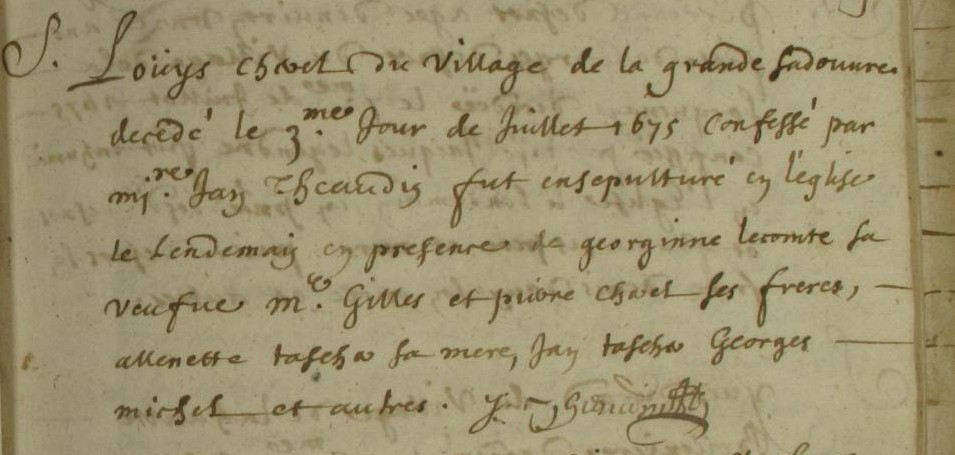 S. Loüys chœl du village de la grande sadouure.
decedé le 3.me Jour de Juillet 1675 Confessé par
mj.re Jan Theaudin fut ensepulturé en l'eglise
le Lendemain en presence de georginne lecomte sa
veufue m.e Gilles et pierre chœl ses freres,
allenette tascho sa mere, Jan tascho Georges
michel et autres.